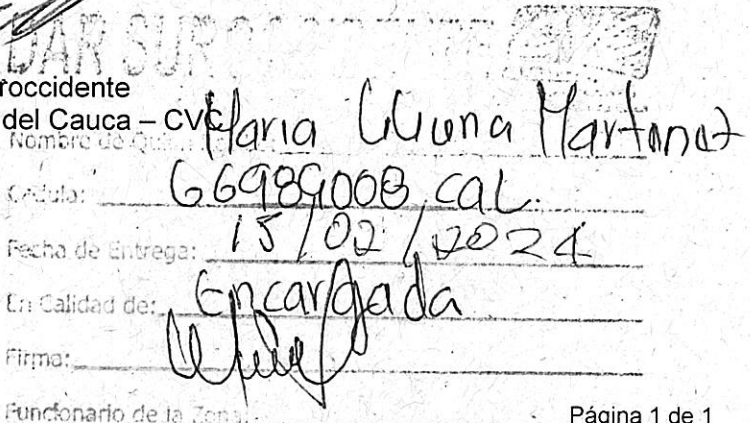 DAR SUROCCIDENTE
roccidente
del Cauca – CVC
Nombre de Quien Maria Liliana Martinez
Cédula: 66989008 cal.
Fecha de Entrega: 15/02/2024
En Calidad de: Encargada
Firma:
Funcionario de la Zona:
Página 1 de 1